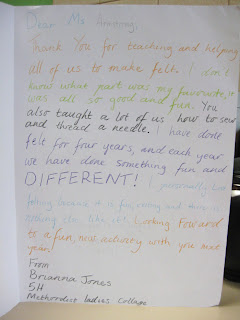 Dear Ms Armstrong,
Thank You for teaching and helping
all of us to make felt. I don't
know what part was my favourite, it
was all so good and fun. You
also taught a lot of us how to sew
and thread a needle. I have done
felt for four years, and each year
we have done something fun and
DIFFERENT! I personally love
felting because it is fun, and
Looking Foward
to a fun, new activity with you next
year.
From
Brianna Jones
5H
Methordist ladies Collage